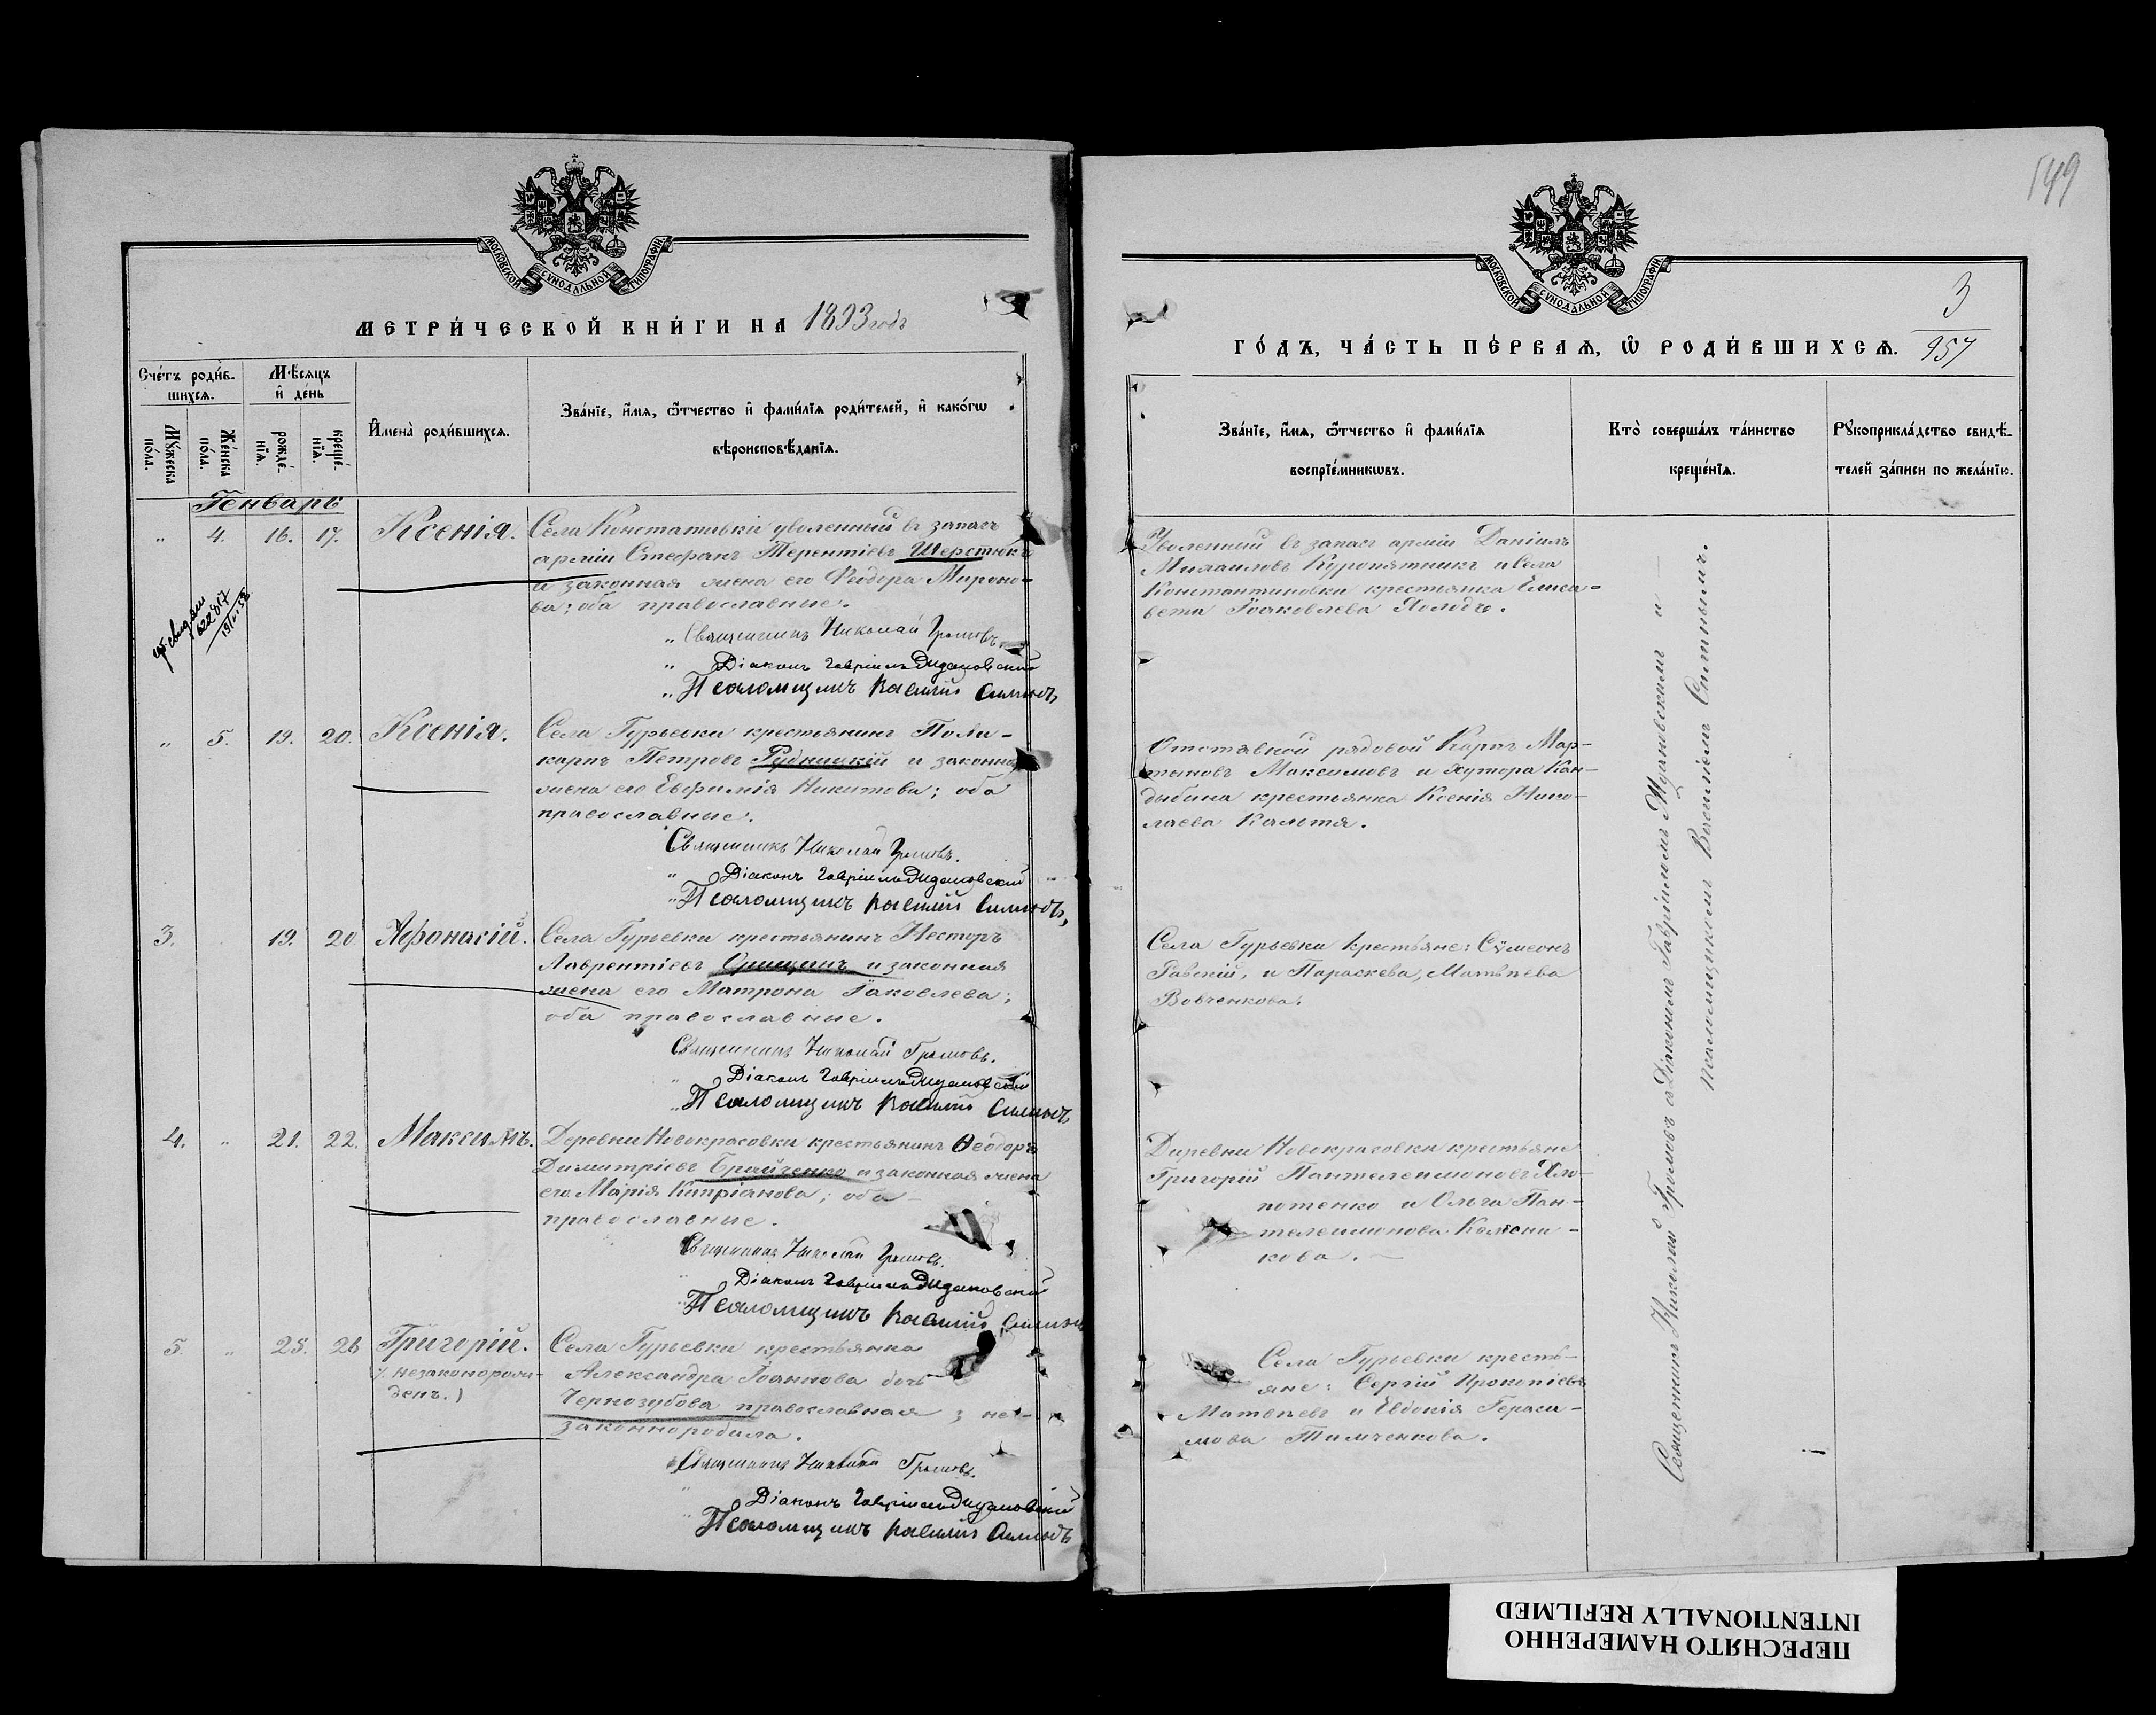 149
МОСКОВСКОЙ СѴНОДАЛЬНОЙ ТИПОГРАФІИ
МЕТРИ́ЧЕСКОЙ КНИ́ГИ НА 1893 годъ
Сче́тъ роди́в-
шихсѧ.
Мѣ́сѧцъ
и҆ де́нь
Мꙋ́жеска
по́ла.
Же́нска
по́ла.
рожде́-
нїѧ.
креще́-
нїѧ.
И҆мена̀ роди́вшихсѧ.
Зва́нїе, и҆́мѧ, ѻ҆́тчество и҆ фами́лїѧ роди́телей, и҆ како́гѡ
вѣроисповѣ́данїѧ.
Генварь
„ 4. 16. 17. Ксенія.
Села Константинвкіи уволенный въ запасъ
арміи Стефанъ Терентіевъ Шерстюкъ
и законная жена его Ѳеодора Мироно-
ва; оба православные.
„ Священникъ Николай Громовъ
„ Діаконъ Гавріилъ Жудановскій
„ Псаломщикъ Василій
622817
„ 5. 19. 20. Ксенія.
Села Гурьевки крестьянинъ Поли-
карпъ Петровъ Рудницкій и законная
жена его Евфимія Никитова; оба
православные.
Священникъ Николай Громовъ.
„ Діаконъ Гавріилъ Жудановскій
„ Псаломщикъ Василій
3. 19. 20 Аѳонасій.
Села Гурьевки крестьянинъ Несторъ
Лаврентіевъ Орищенъ и законная
жена его Матрона Іаковлева;
оба православные.
Священникъ Николай Громовъ.
„ Діаконъ Гавріилъ Жудановскій
„ Псаломщикъ Василій
4. „ 21. 22. Максимъ.
Деревни Новокрасовки крестьянинъ Ѳеодоръ
Димитріевъ Брайченко и законная жена
его Марія Кипріанова; оба
православные.
Священникъ Николай Громовъ.
„ Діаконъ Гавріилъ Жудановскій
„ Псаломщикъ Василій
5. „ 25. 26 Григорій.
(незаконорож-
денъ.)
Села Гурьевки крестьянка
Александра Іоаннова дочь
Чернозубова православная; не-
законнородила.
Священникъ Николай Громовъ.
„ Діаконъ Гавріилъ Жудановскій
„ Псаломщикъ Василій
МОСКОВСКОЙ СѴНОДАЛЬНОЙ ТИПОГРАФІИ
3
957
ГО́ДЪ, ЧА́СТЬ ПЕ́РВАѦ, Ѡ҆ РОДИ́ВШИХСѦ.
Зва́нїе, и҆́мѧ, ѻ҆́тчество и҆ фами́лїѧ
воспрїе́мникѡвъ.
Кто̀ соверша́лъ та́инство
креще́нїѧ.
Рꙋкоприкла́дство свидѣ́-
телей за́писи по жела́нїю.
Уволенный въ запасъ арміи Даніилъ
Михаиловъ Куропятникъ и села
Константиновки крестьянка Елиса-
вета Іаковлева Холодъ.
Отставной рядовой Карпъ Мар-
тыновъ Максимовъ и хутора Кан-
дыбина крестьянка Ксенія Нико-
лаева Кальтя.
Села Гурьевки крестьяне: Сѵмеонъ
Равскій, и Параскева Матвѣева
Вовченкова.
Деревни Новокрасовки крестьяне
Григорій Пантелеимоновъ Хло-
потенко и Ольга Пан-
телеимонова Колесни-
кова.
Села Гурьевки кресть-
яне: Сергій Прокопіевъ
Матвѣевъ и Евдокія Гераси-
мова Тимченкова.
Священникъ Николай Громовъ съ Діакономъ Гавріиломъ Жудановскимъ и
псаломщикомъ Василіемъ
ПЕРЕСНЯТО НАМЕРЕННО
INTENTIONALLY REFILMED